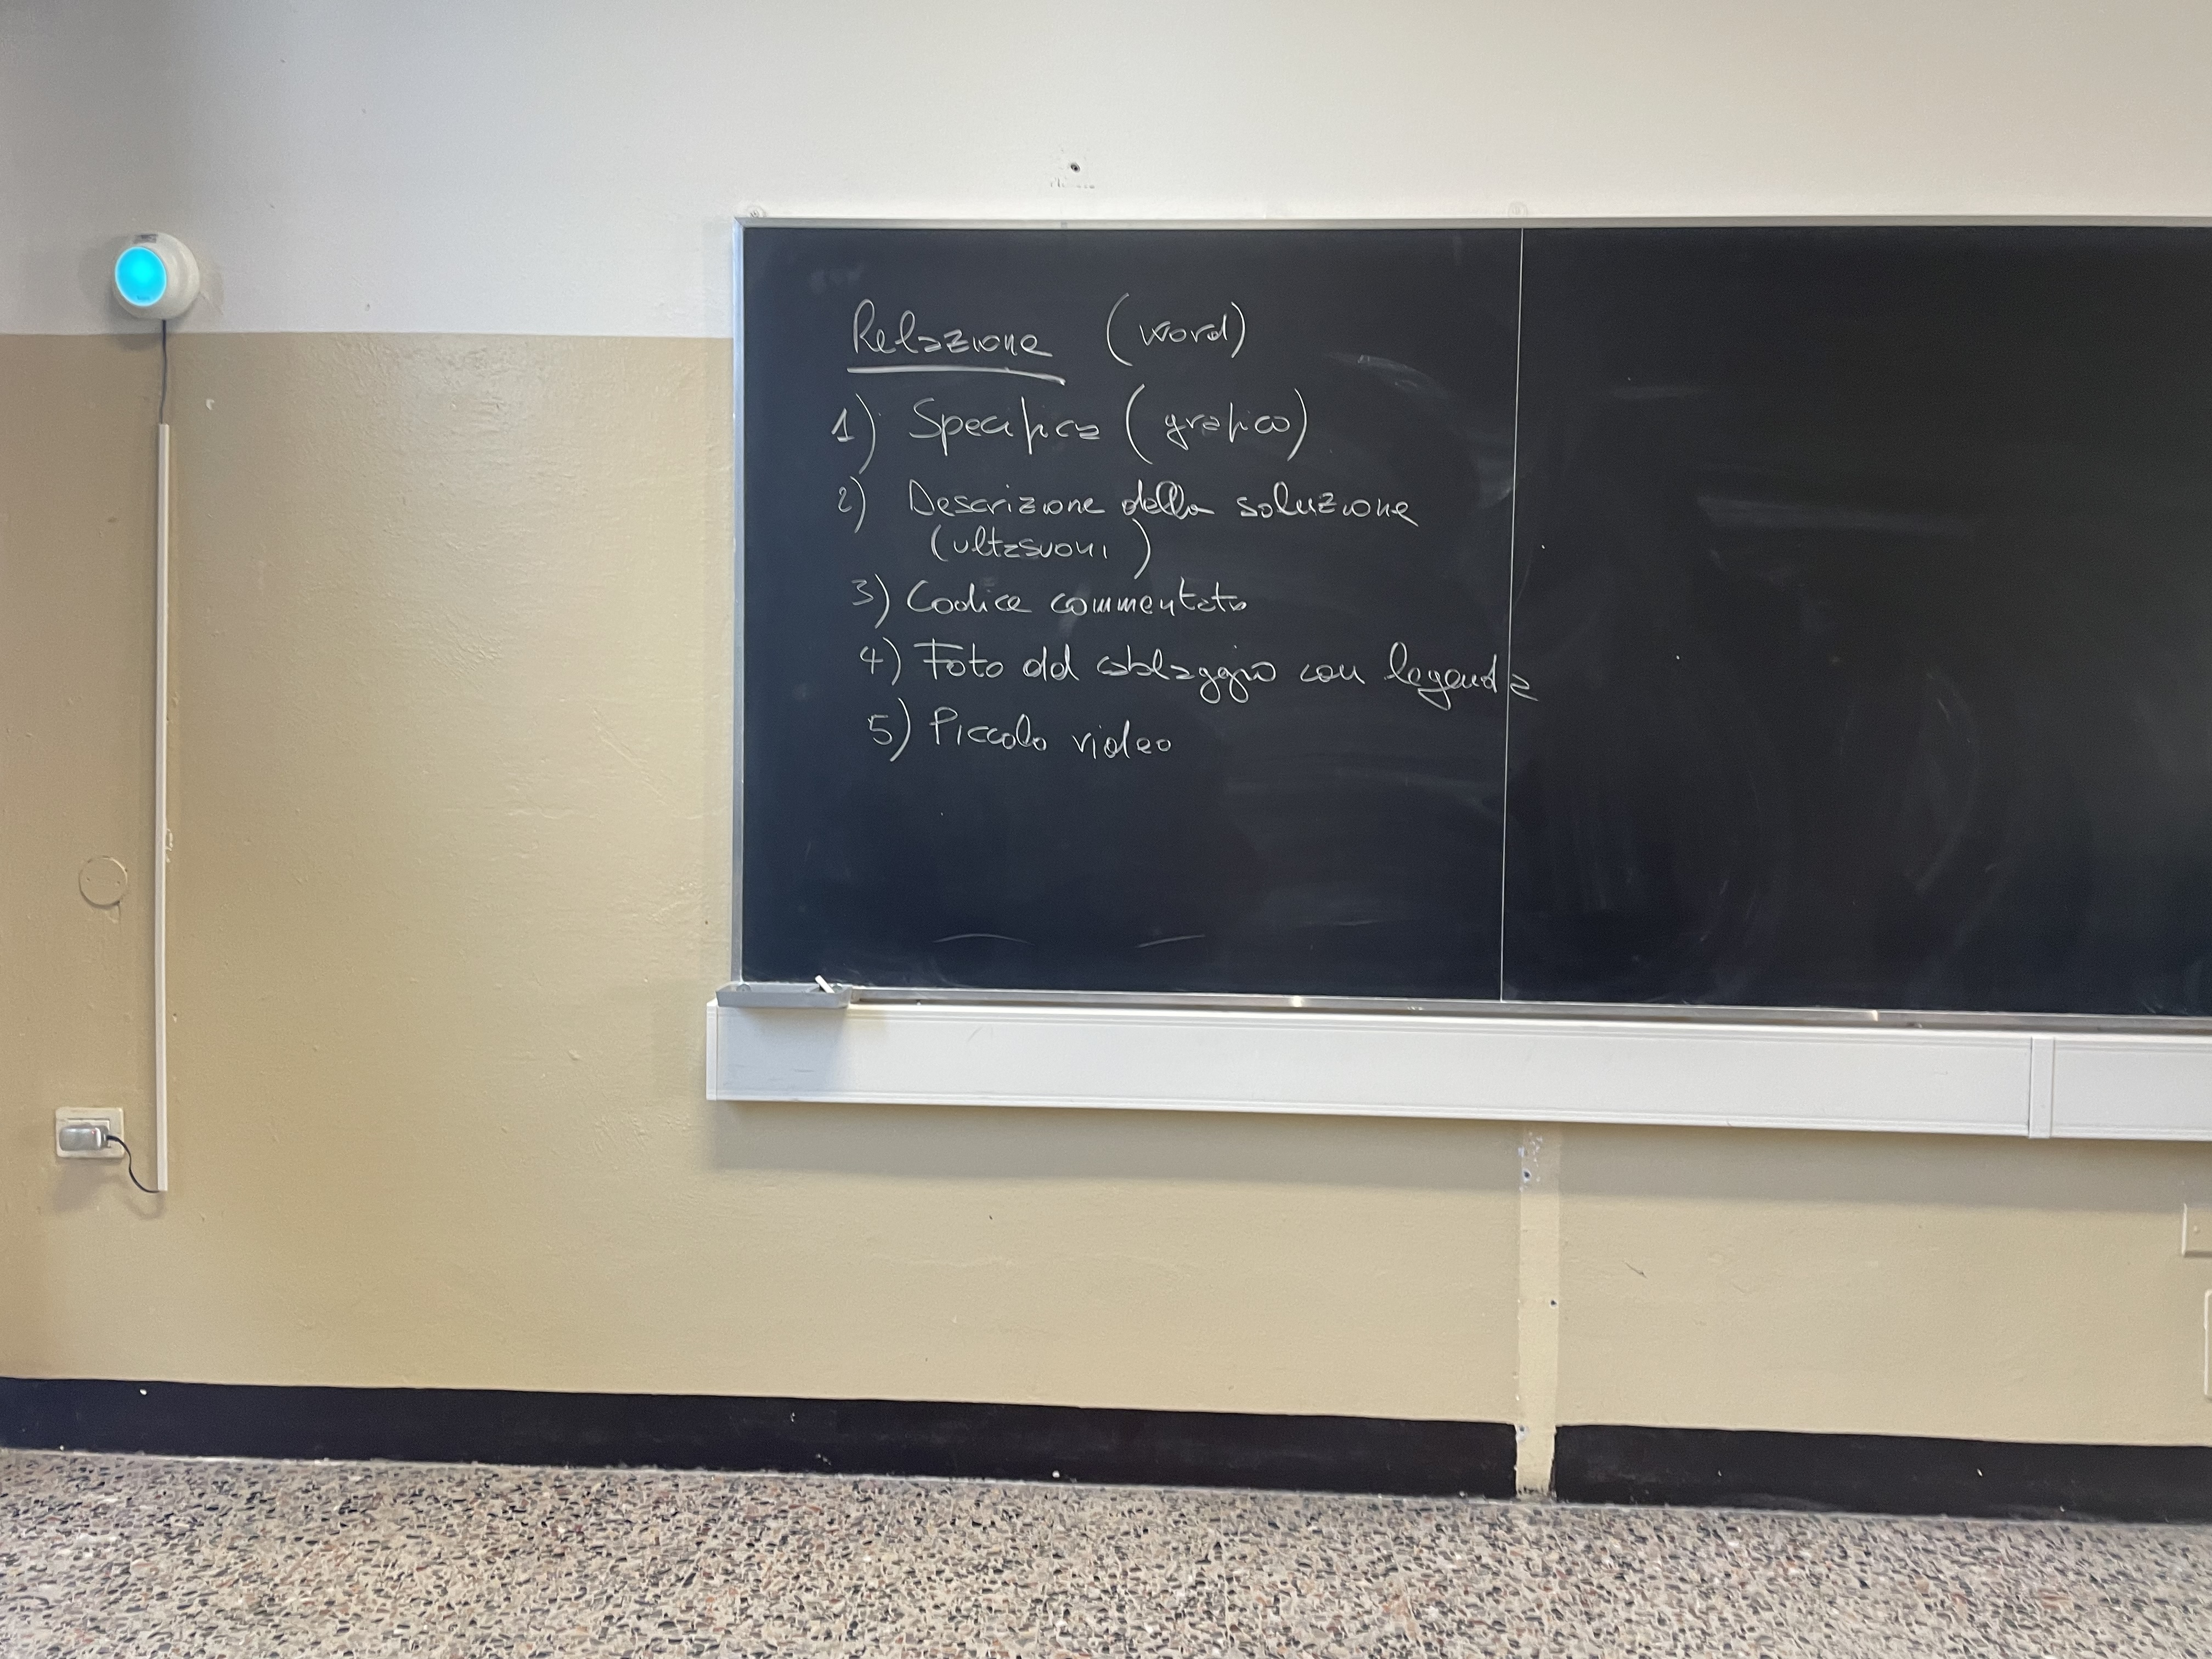 Relazione (word)
1) Specifica (grafico)
2) Descrizione della soluzione
(ultrasuoni)
3) Codice commentato
4) Foto del cablaggio con legenda
5) Piccolo video